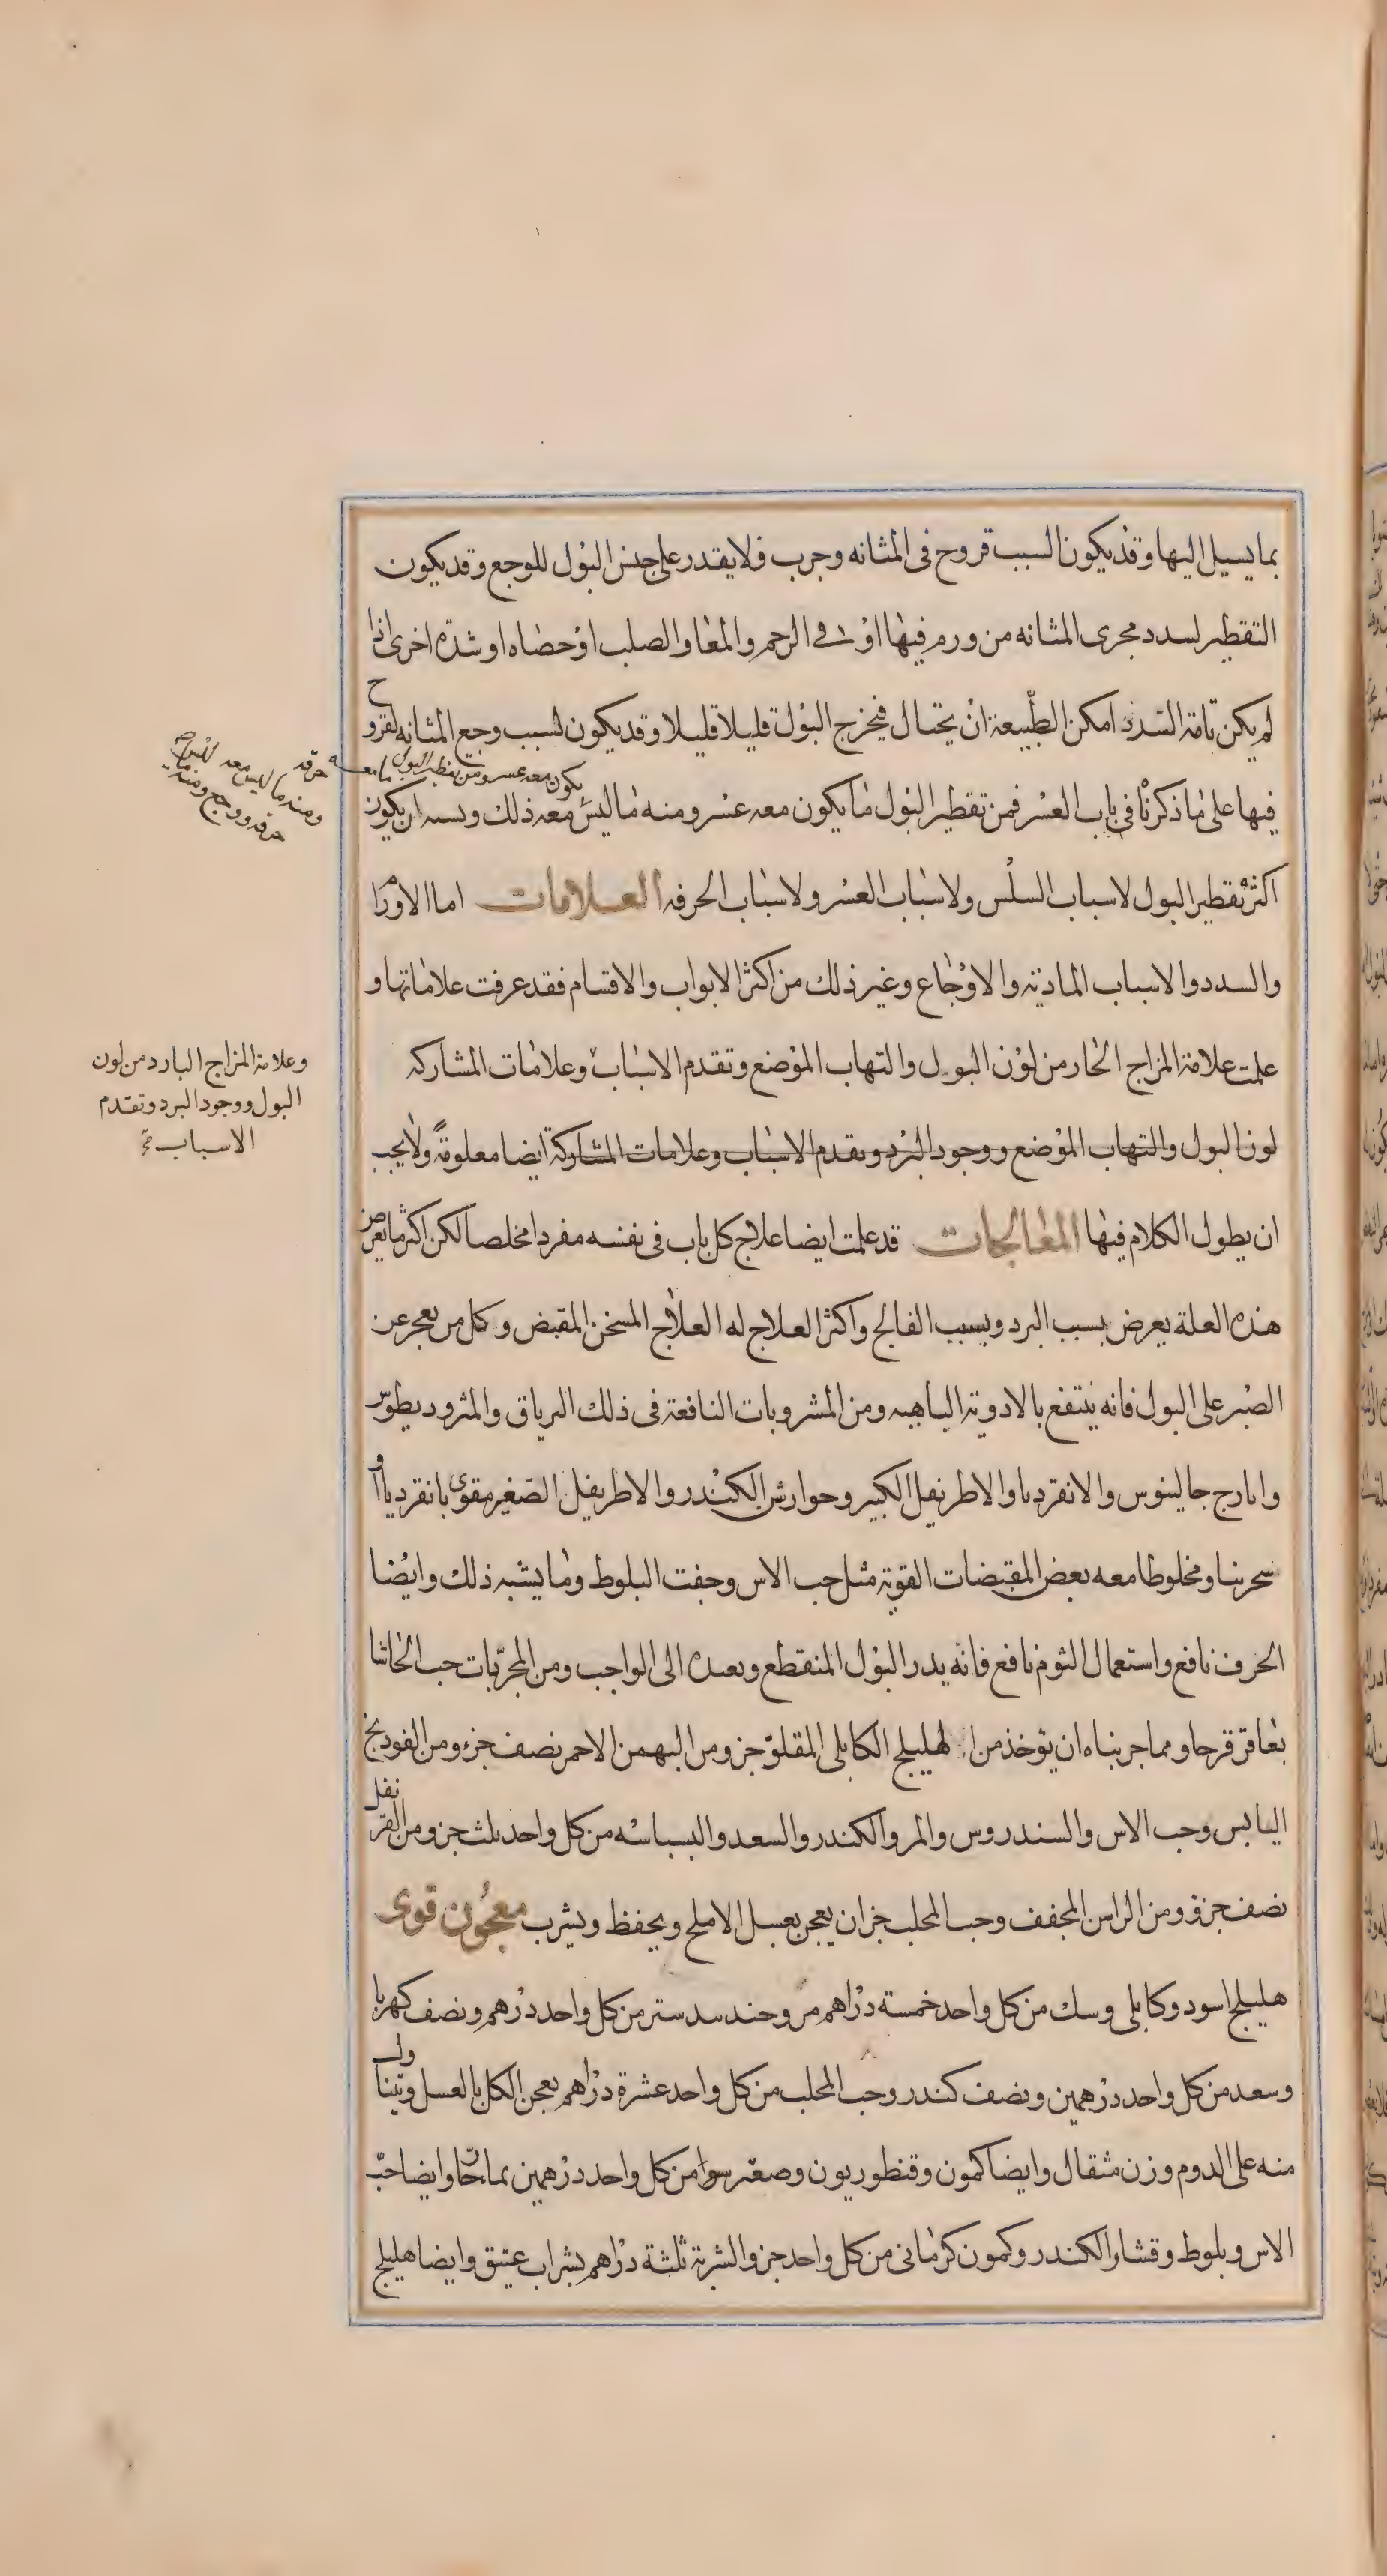 بما يسيل اليها وقد يكون السبب قروح فى المثانه وجرب فلا يقدر على حبس البول للوجع وقد يكون
التقطير لسدد مجرى المثانه من ورم فيها او فى الرحم والمعا والصلب او حصاه او شدة اخرى اذا
لم يكن تامة السدد امكن الطبيعة ان يحتال فيخرج البول قليلا قليلا وقد يكون لسبب وجع المثانه لقروح
فيها على ما ذكرنا فى باب العسر فمن تقطير البول ما يكون معه عسر ومنه ما ليس معه ذلك ويسبه ان يكون
يكون معه عسر ومن تقطير البول ما معه حرقه
ومنه ما ليس معه
حرقه ووجع ومنه
اكثر تقطير البول لاسباب السلس ولاسباب العسر ولاسباب الحرقه العلامات اما الاورام
والسدد والاسباب الماديه والاوجاع وغير ذلك من اكثر الابواب والاقسام فقد عرفت علاماتها و
علمت علامة المزاج الحار من لون البول والتهاب الموضع وتقدم الاسباب وعلامات المشاركه
وعلامة المزاج البارد من لون
البول ووجود البرد وتقدم
الاسباب
لون البول والتهاب الموضع ووجود البرد وتقدم الاسباب وعلامات المشاركة ايضا معلومة ولا يجب
ان يطول الكلام فيها المعالجات قد علمت ايضا علاج كل باب فى نفسه مفردا مخلصا لكن اكثر ما يعرض
هذه العلة يعرض بسبب البرد وبسبب الفالج واكثر العلاج له العلاج المسخن المقبض وكل من يعجز عن
الصبر على البول فانه ينتفع بالادوية الباهيه ومن المشروبات النافعة فى ذلك الترياق والمثروديطوس
وايارج جالينوس والانقرديا والاطريفل الكبير وجوارش الكندر والاطريفل الصغير مقوى بانقرديا او
سجرينا ومخلوطا معه بعض المقبضات القوية مثل حب الاس وجفت البلوط وما يشبه ذلك وايضا
الحرف نافع واستعمال الثوم نافع فانه يدر البول المنقطع ويعيده الى الواجب ومن المجربات حب الحاشا
بعاقر قرحا ومما جربناه ان يؤخذ من الهليلج الكابلى المقلو جز ومن البهمن الاحمر نصف جزء ومن الفودنج
اليابس وحب الاس والسندروس والمر والكندر والسعد والبسباسه من كل واحد ثلث جز ومن القرنفل
نصف جزؤ ومن الراسن المجفف وحب المحلب جزان يعجن بعسل الاملج ويحفظ ويشرب معجون قوى
هليلج اسود وكابلى وسك من كل واحد خمسه دراهم مر وجندسدستر من كل واحد درهم ونصف كهربا
وسعد من كل واحد درهمين ونصف كندر وحب المحلب من كل واحد عشرة دراهم يعجن الكل بالعسل ويتناول
منه على الدوم وزن مثقال وايضا كمون وقنطوريون وصعتر سوا من كل واحد درهمين بما حار وايضا حب
الاس وبلوط وقشار الكندر وكمون كرمانى من كل واحد جز والشربة ثلثة دراهم بشراب عتيق وايضا هليلج